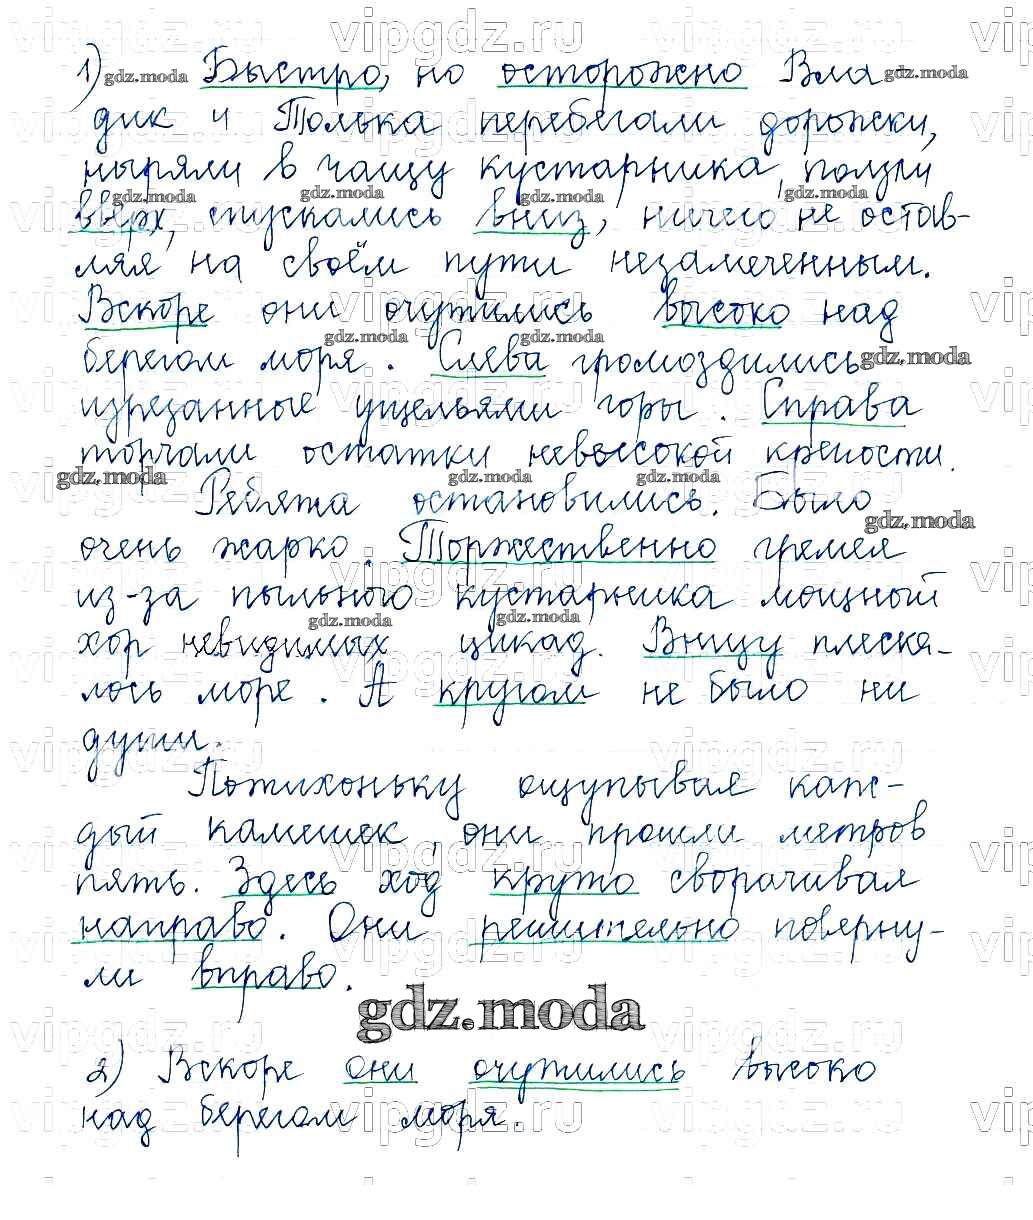 1) Быстро, но осторожно Вла-
дик и Толька перебегали дорожки,
ныряли в чащу кустарника, ползли
вверх, спускались вниз, ничего не остав-
ляя на своём пути незамеченным.
Вскоре они очутились высоко над
берегом моря. Слева громоздились
изрезанные ущельями горы. Справа
торчали остатки невысокой крепости.
Ребята остановились. Было
очень жарко. Торжественно гремел
из-за пыльного кустарника мощный
хор невидимых цикад. Внизу плеска-
лось море. А кругом не было ни
души.
Потихоньку ощупывая каж-
дый камешек, они прошли метров
пять. Здесь ход круто сворачивал
направо. Они решительно поверну-
ли вправо.
gdz.moda
2) Вскоре они очутились высоко
над берегом моря.